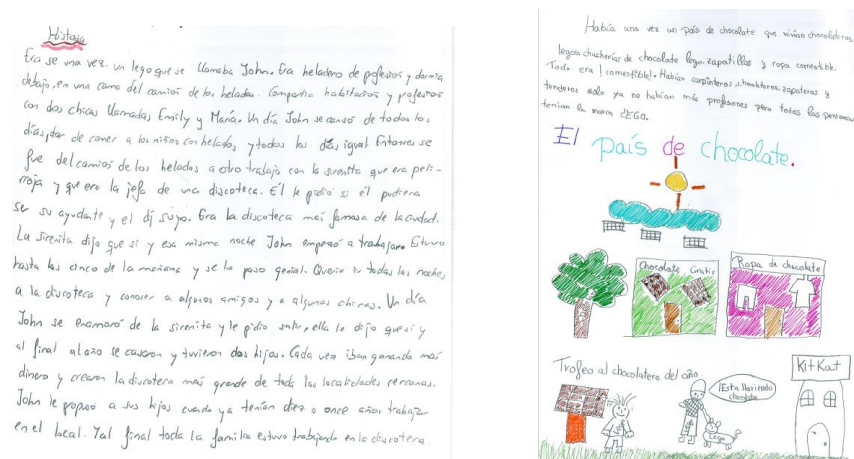 Historia
Era se una vez. un lego que se llamaba John. Era heladero de profesion y dormia
debajo, en una cama del camion de los helados. Compartia habitacion y profesion
con dos chicas llamadas Emily y María. Un día John se cansó de todos los
días, dar de comer a los niños con helados, y todos los días igual Entonces se
fue del camion de los helados a otro trabajo con la sirenita que era peli-
rroja y que era la jefa de una discoteca. Él le pidió si él pudiera
ser su ayudante y el dj suyo. Era la discoteca más famosa de la ciudad.
La sirenita dijo que si y esa misma noche John empezó a trabajar. Estuvo
hasta las cinco de la mañana y se lo paso genial. Queria ir todas las noches
a la discoteca y conocer a algunos amigos y a algunas chicas. Un día
John se enamoró de la sirenita y le pidio salir, ella le dijo que si y
al final al año se casaron y tuvieron dos hijos. Cada vez iban ganando más
dinero y crearon la discoteca más grande de toda las localidades cercanas.
John le propuso a sus hijos cuando ya tenían diez o once años trabajar
en el local. Y al final toda la familia estuvo trabajando en la discoteca
Había una vez un país de chocolate que vivian chocolateros
legos chucherías de chocolate lego. zapatillas y ropa comestible.
Todo era ¡comestible!. Habían carpinteros, zapateros y
tenderos solo ya no habían más profesiones pero todas las personas
tenían la marca
El país de chocolate.
Chocolate Gratis
Ropa de chocolate
Trofeo al chocolatero del año.
¡Esta lloviendo
chocolate
Lego
KitKat